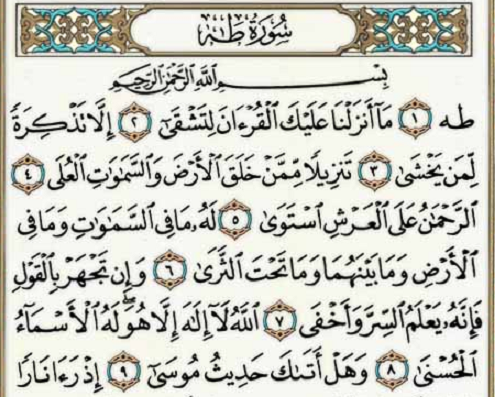 سُورَةُ طه
بِسْمِ اللَّهِ الرَّحْمَٰنِ الرَّحِيمِ
طه ١ مَآ أَنزَلْنَا عَلَيْكَ الْقُرْءَانَ لِتَشْقَىٰٓ ٢ إِلَّا تَذْكِرَةً
لِّمَن يَخْشَىٰ ٣ تَنزِيلًا مِّمَّنْ خَلَقَ الْأَرْضَ وَالسَّمَٰوَٰتِ الْعُلَى ٤
الرَّحْمَٰنُ عَلَى الْعَرْشِ اسْتَوَىٰ ٥ لَهُۥ مَا فِى السَّمَٰوَٰتِ وَمَا فِى
الْأَرْضِ وَمَا بَيْنَهُمَا وَمَا تَحْتَ الثَّرَىٰ ٦ وَإِن تَجْهَرْ بِالْقَوْلِ
فَإِنَّهُۥ يَعْلَمُ السِّرَّ وَأَخْفَى ٧ اللَّهُ لَآ إِلَٰهَ إِلَّا هُوَ ۖ لَهُ الْأَسْمَآءُ
الْحُسْنَىٰ ٨ وَهَلْ أَتَىٰكَ حَدِيثُ مُوسَىٰٓ ٩ إِذْ رَءَا نَارًا